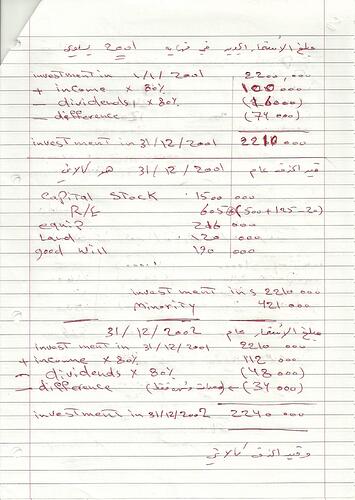 مبلغ الإستثمار الجديد في نهاية 2001 يساوي
investment in 1/1/2001 2200,000
+ income × 80% 100 000
- dividends, × 80% (16000)
- difference (74 000)
investment in 31/12/2001 2210 000
قيد الحذف عام 31/12/2001 هو كالآتي
Capital Stock 1500 000
R/E 605 (500+125-20)
equip 246 000
Land 120 000
good will 190 000
investment in S 2210 000
Minority 421 000
مبلغ الإستثمار عام 31/12/2002
investment in 31/12/2001 2210 000
+ income × 80% 112 000
- dividends × 80% (48 000)
- difference (34 000)
investment in 31/12/2002 2240 000
وقيد الحذف كالآتي